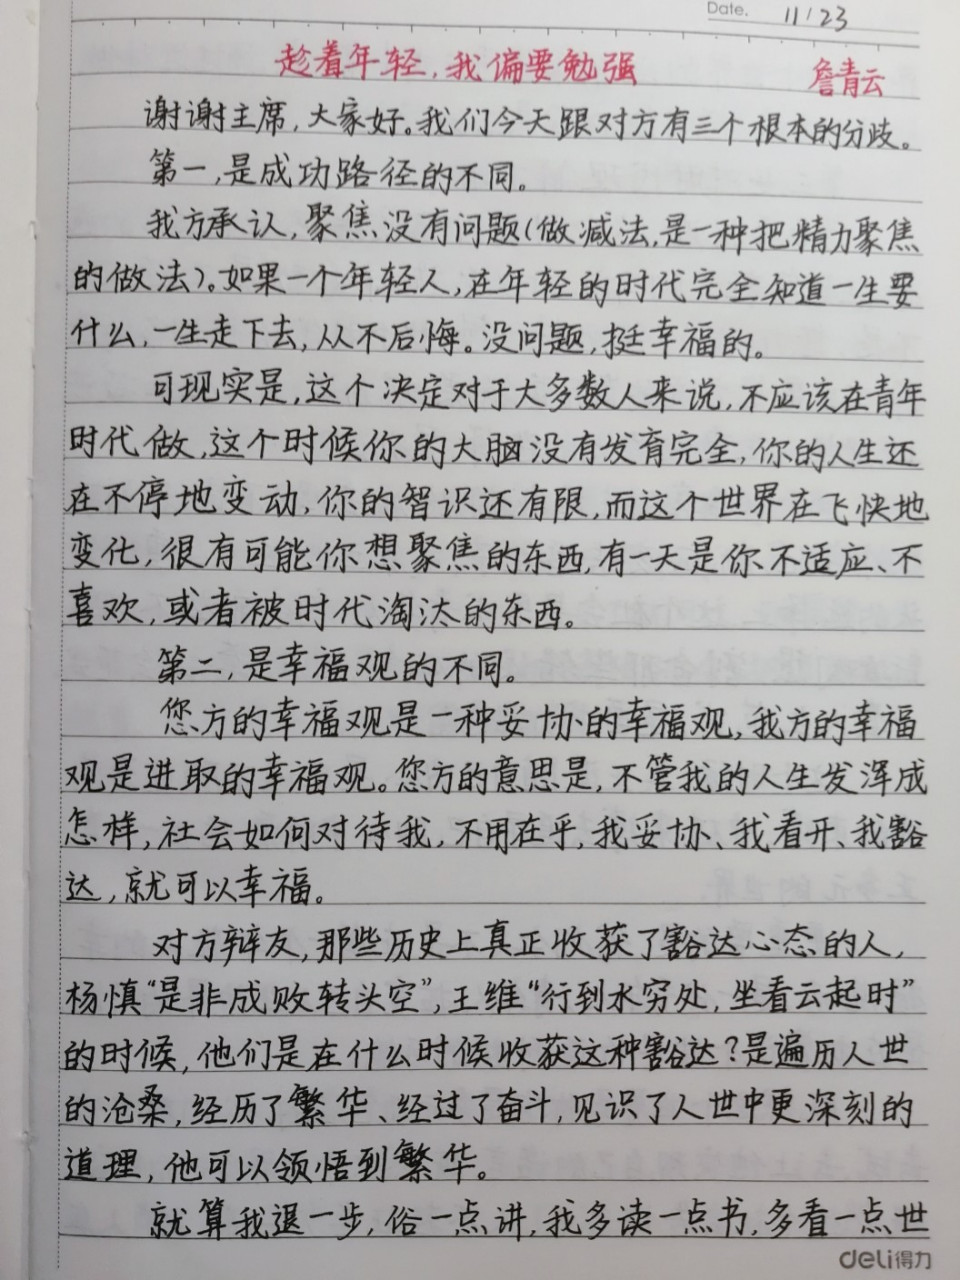 Date. 11/23
趁着年轻，我偏要勉强 詹青云
谢谢主席，大家好。我们今天跟对方有三个根本的分歧。
第一，是成功路径的不同。
我方承认，聚焦没有问题（做减法，是一种把精力聚焦
的做法）。如果一个年轻人，在年轻的时代完全知道一生要
什么，一生走下去，从不后悔。没问题，挺幸福的。
可现实是，这个决定对于大多数人来说，不应该在青年
时代做，这个时候你的大脑没有发育完全，你的人生还
在不停地变动，你的智识还有限，而这个世界在飞快地
变化，很有可能你想聚焦的东西，有一天是你不适应、不
喜欢，或者被时代淘汰的东西。
第二，是幸福观的不同。
您方的幸福观是一种妥协的幸福观，我方的幸福
观是进取的幸福观。您方的意思是，不管我的人生发浑成
怎样，社会如何对待我，不用在乎，我妥协、我看开、我豁
达，就可以幸福。
对方辩友，那些历史上真正收获了豁达心态的人，
杨慎“是非成败转头空”，王维“行到水穷处，坐看云起时”
的时候，他们是在什么时候收获这种豁达？是遍历人世
的沧桑，经历了繁华、经过了奋斗，见识了人世中更深刻的
道理，他可以领悟到繁华。
就算我退一步，俗一点讲，我多读一点书，多看一点世
deli得力